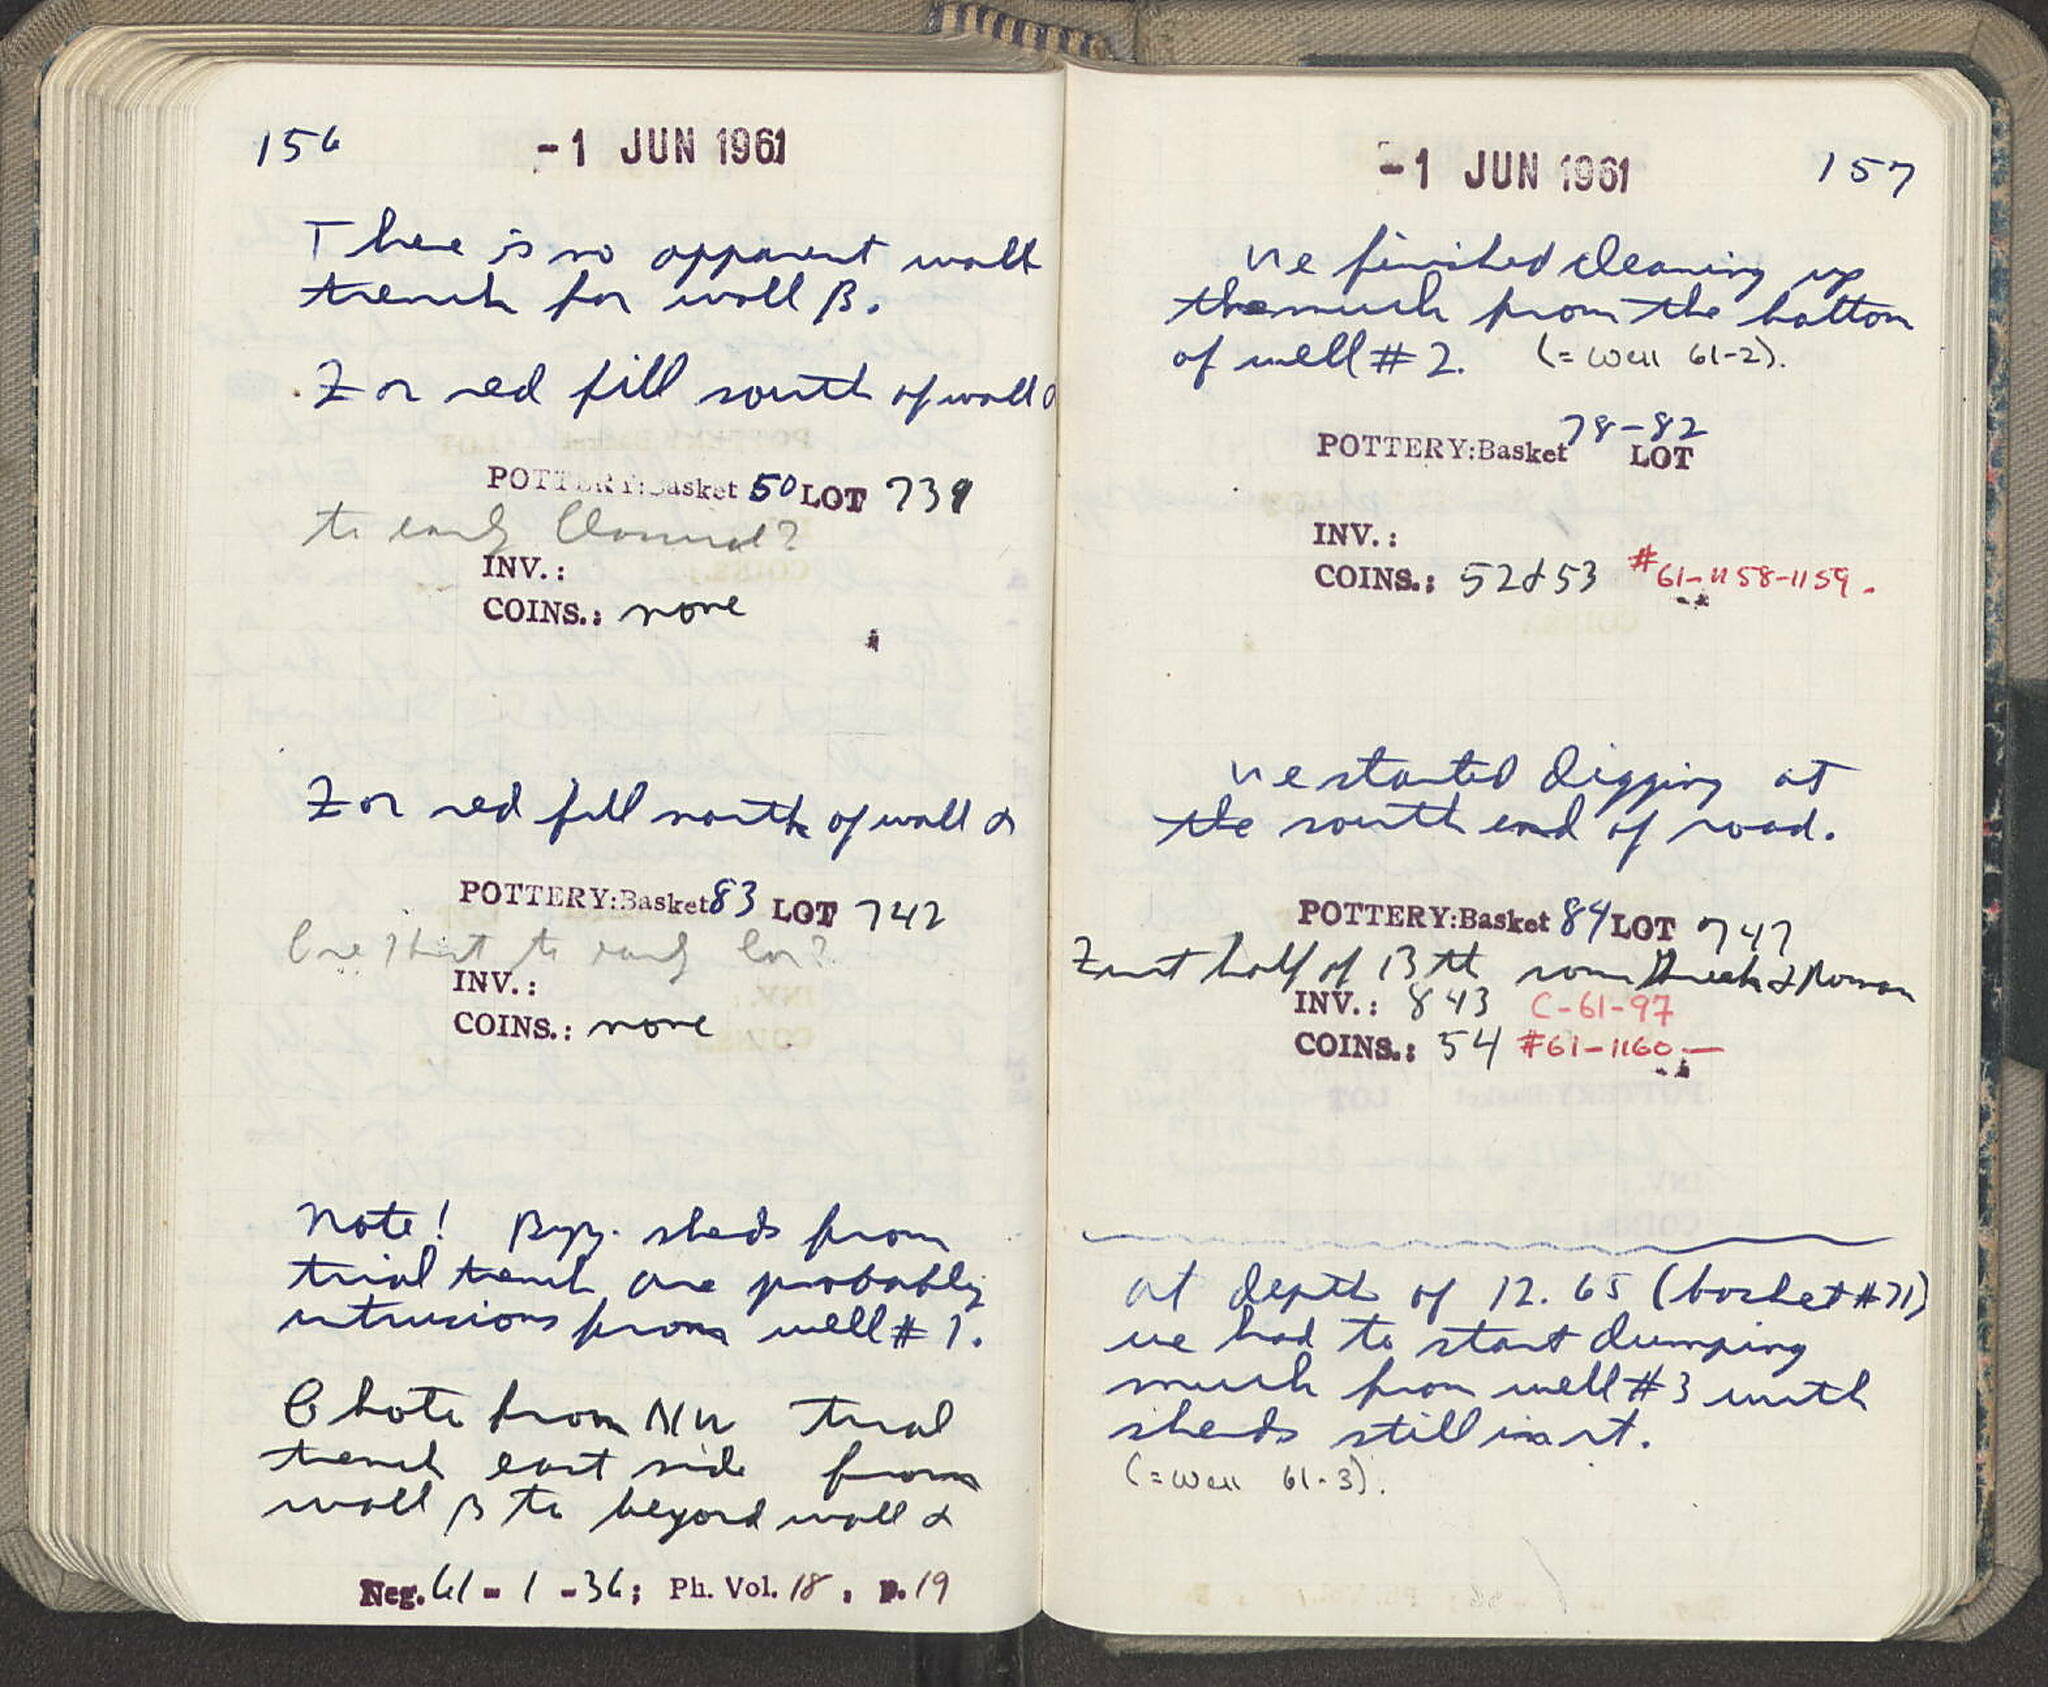 156
-1 JUN 1961
There is no apparent wall
trench for wall β.
For red fill south of wall α
POTTERY: Basket 50 LOT 739
to early Classical?
INV.:
COINS.: none
For red fill north of wall α
POTTERY: Basket 83 LOT 742
to early
INV.:
COINS.: none
Note! Byz. sherds from
trial trench are probably
intrusions from well # 1.
Photo from NW trial
trench east side from
wall β to beyond wall α
Neg. 61 - 1 - 36; Ph. Vol. 18, p. 19
-1 JUN 1961
157
We finished cleaning up
the muck from the bottom
of well # 2. (= Well 61-2).
POTTERY: Basket 78-82 LOT
INV.:
COINS.: 52 & 53 #61-1158-1159.
We started digging at
the south end of road.
POTTERY: Basket 84 LOT 747
First half of 13th some Greek & Roman
INV.: 843 C-61-97
COINS.: 54 #61-1160.—
at depth of 12.65 (basket #71)
we had to start dumping
muck from well #3 with
sherds still in it.
(= Well 61-3).